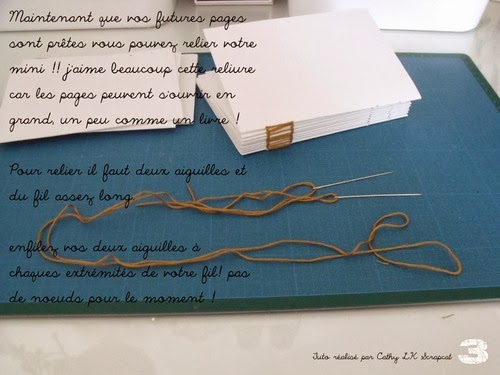 Maintenant que vos futures pages
sont prêtes vous pouvez relier votre
mini !! j'aime beaucoup cette reliure
car les pages peuvent s'ouvrir en
grand, un peu comme un livre !
Pour relier il faut deux aiguilles et
du fil assez long.
enfilez vos deux aiguilles à
chaques extrémités de votre fil! pas
de noeuds pour le moment !
Tuto réalisé par Cathy LK Scrapcat
3